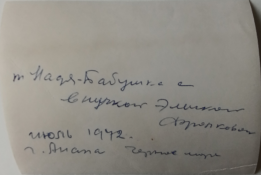 т Надя-Бабушка с
внучкой Эллиной
июль 1972.
г. Анапа Черное море